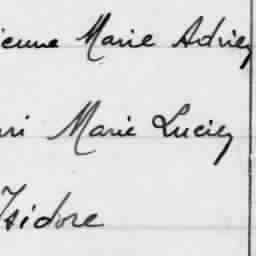 ienne Marie Adrien
ri Marie Lucien
Isidore